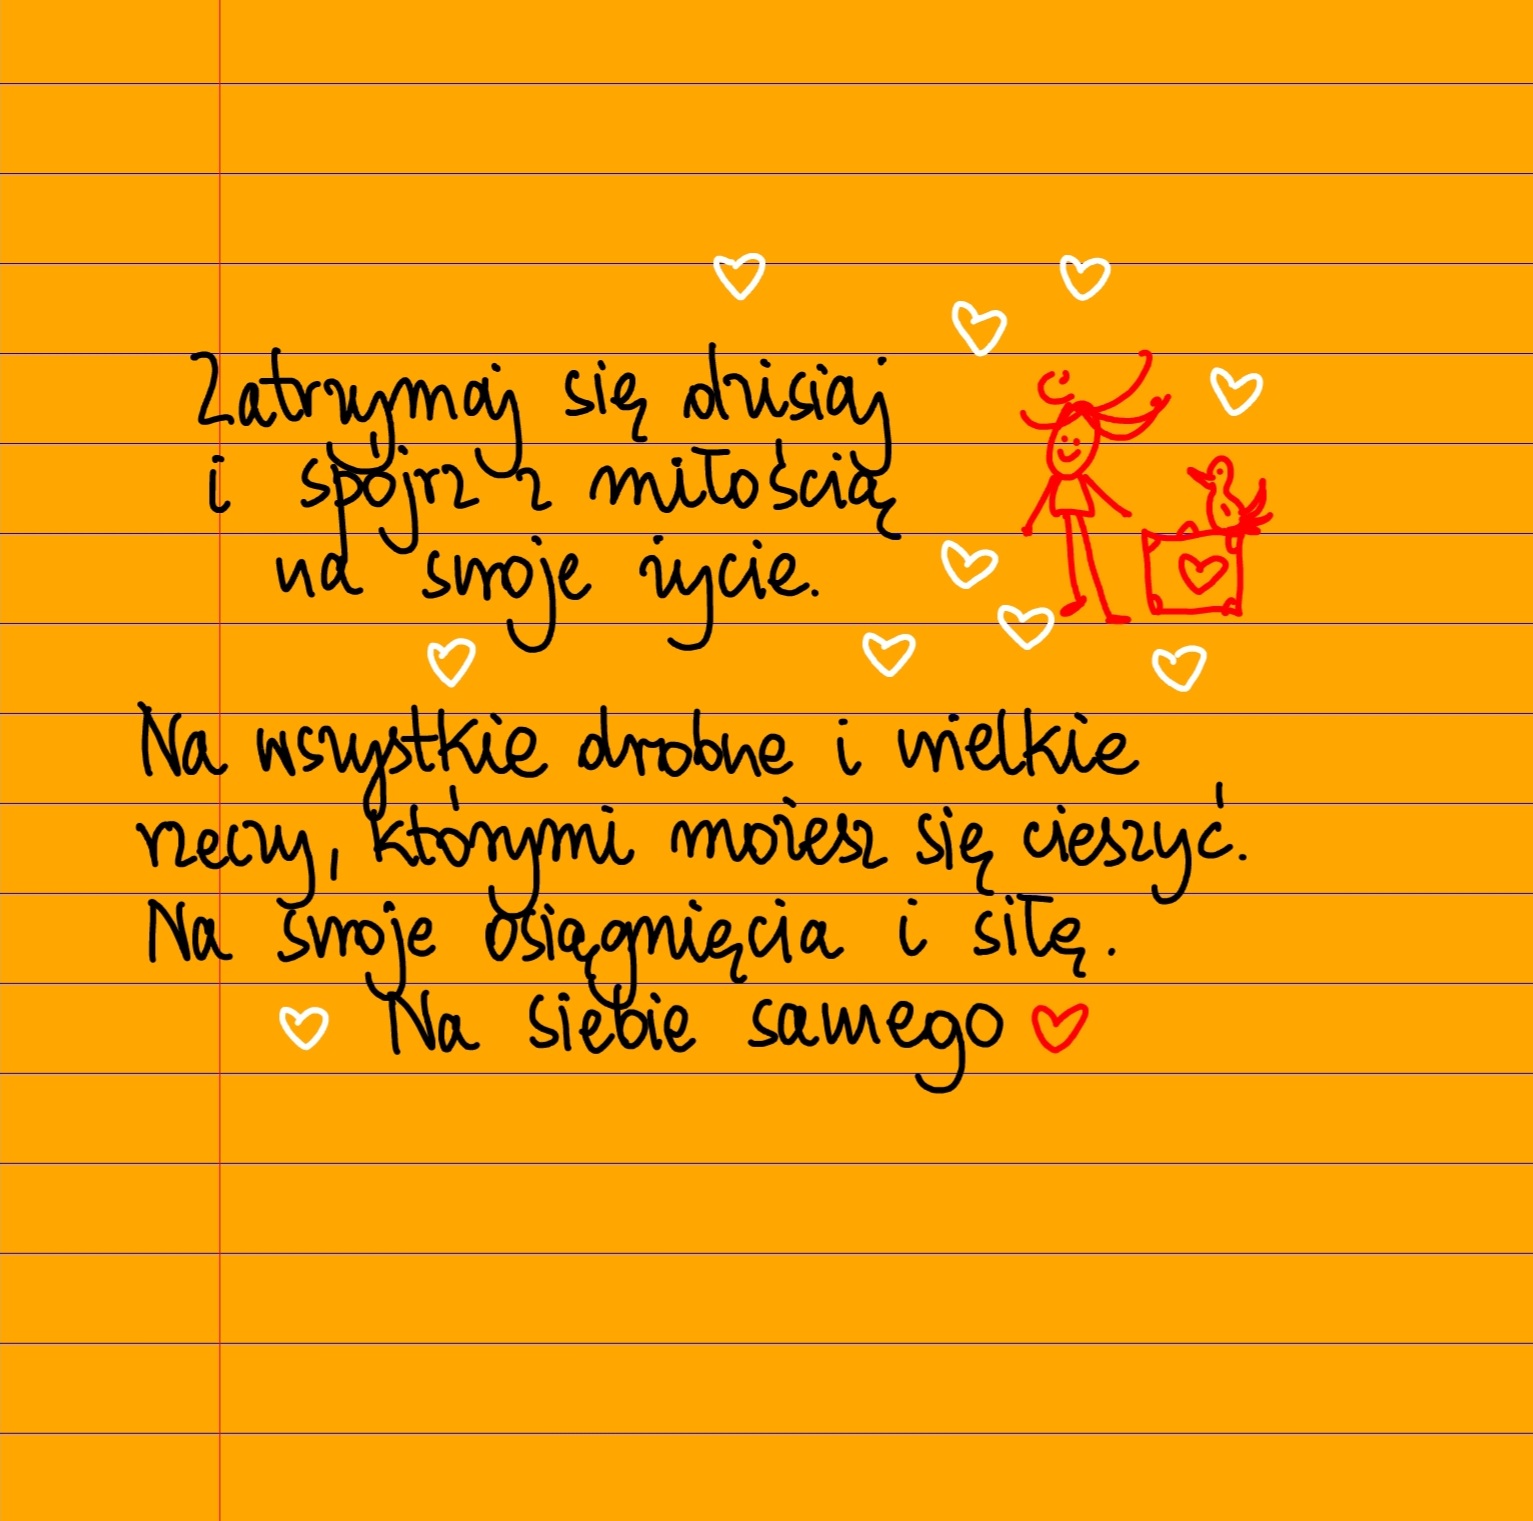 Zatrzymaj się dzisiaj
i spójrz z miłością
na swoje życie.
Na wszystkie drobne i wielkie
rzeczy, którymi możesz się cieszyć.
Na swoje osiągnięcia i siłę.
Na siebie samego